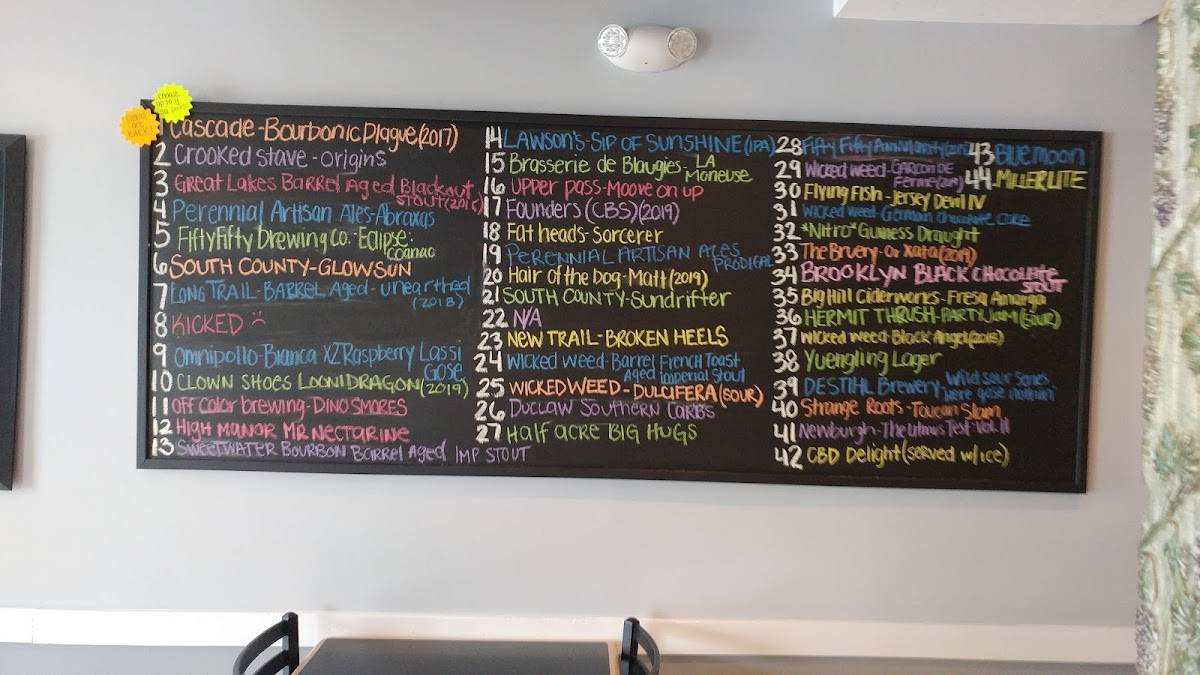 CHOOSE UP TO 4
ARE BACK!
1 Cascade-Bourbonic Plague(2017)
2 Crooked Stave-origins
3 Great Lakes Barrel Aged Blackout
STOUT
4 Perennial Artisan Ales-Abraxas
5 FiftyFifty Brewing Co.-Eclipse:
Cognac
6 SOUTH COUNTY-GLOWSUN
7 LONG TRAIL-BARREL Aged-unearthed
(2018)
8 KICKED
9 Omnipollo-Bianca XZ Raspberry Lassi
Gose
10 CLOWN SHOES LOONIDRAGON(2019)
11 Off Color brewing-DINO SMORES
12 HIGH MANOR MR NECTARINE
13 SWEETWATER BOURBON BARREL Aged IMP STOUT
14 LAWSON'S-SIP OF SUNSHINE(IPA)
15 Brasserie de Blaugies-LA
Moneuse
16 UPPER pass-Moove on up
17 Founders (CBS)(2019)
18 Fat heads-Sorcerer
19 PERENNIAL ARTISAN ALES
PRODIGAL
20 Hair of the Dog-Matt(2019)
21 SOUTH COUNTY-Sundrifter
22 N/A
23 NEW TRAIL-BROKEN HEELS
24 Wicked Weed-Barrel French Toast
Aged imperial Stout
25 WICKEDWEED-DULCIFERA(SOUR)
26 DUCLAW SOUTHERN CARBS
27 HALF ACRE BIG HUGS
28 Fifty Fifty
29 Wicked Weed-GARCON DE
Ferme
30 FLYING FISH-Jersey Devil IV
31 Wicked weed-German chocolate cake
32 *Nitro* Guiness Draught
33 The Bruery-Or Xata(2019)
34 BROOKLYN BLACK CHOCOLATE
STOUT
35 Big Hill Ciderworks-Fresa Amarga
36 HERMIT THRUSH-PARTY JAM(SOUR)
37 Wicked weed-Black Angel
38 Yuengling Lager
39 DESTIHL Brewery-Wild sour Series
Here gose nothin'
40 Strange Roots-Toucan Slam
41 Newburgh-The Test: Vol. II
42 CBD Delight(served w/ice)
43 BLUE MOON
44 MILLER LITE